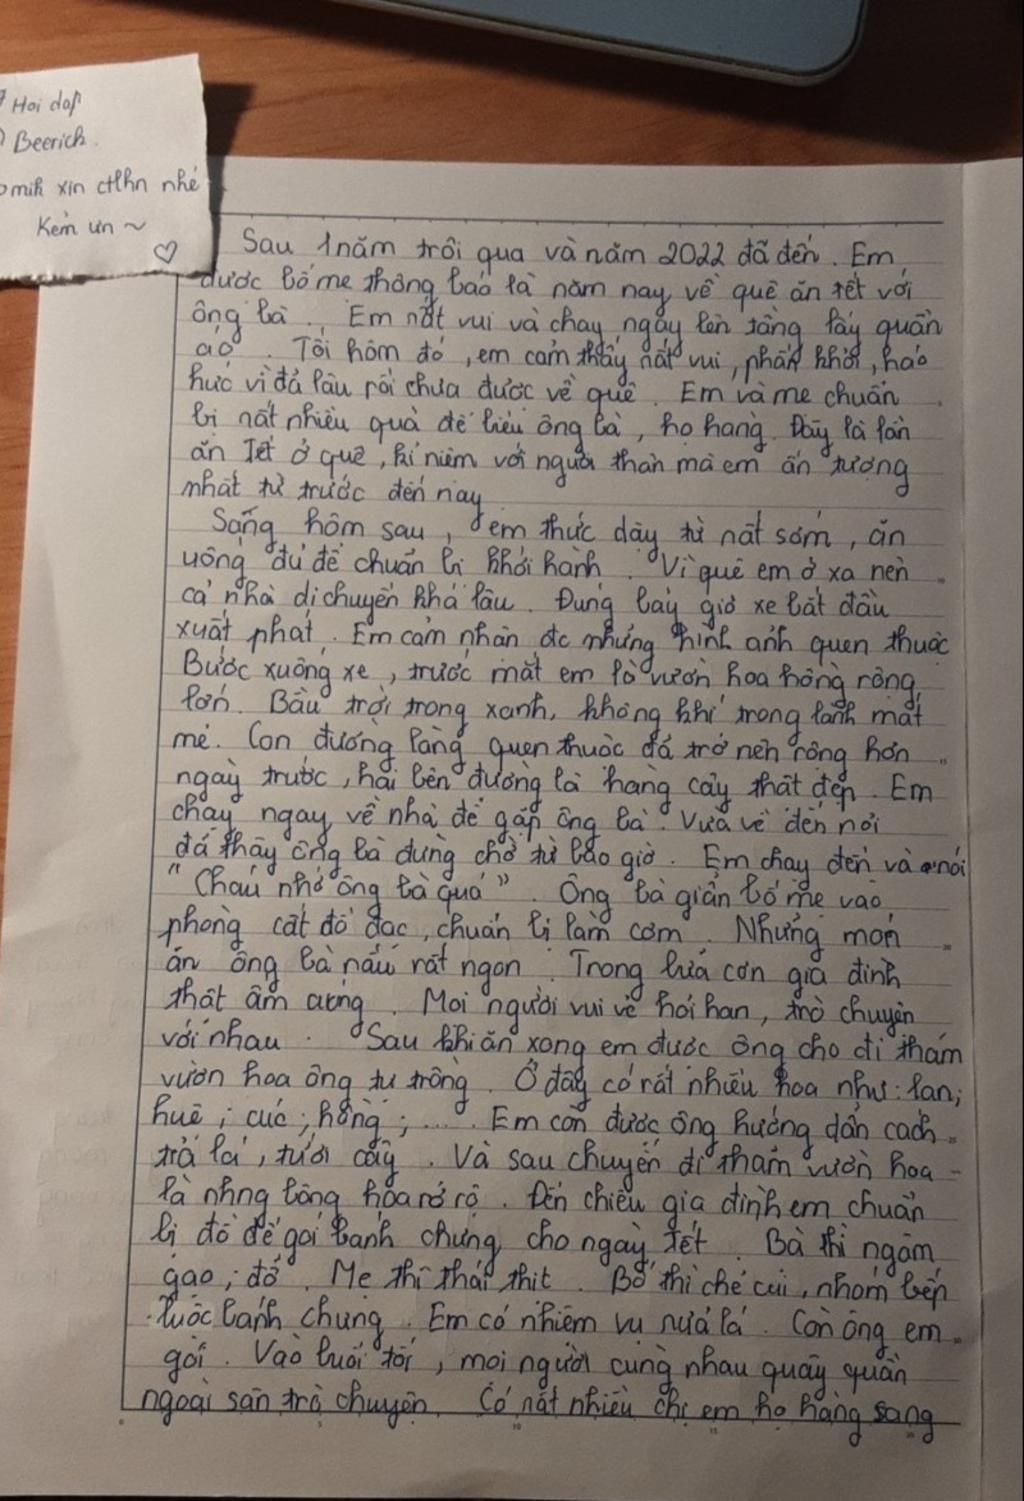 Hoi dap
Beerich.
mik xin ctlhn nhé
Kẻm ưn ~
Sau 1 năm trôi qua và năm 2022 đã đến. Em
được bố mẹ thông báo là năm nay về quê ăn tết với
ông bà. Em nất vui và chạy ngay lên tầng lấy quần
áo. Tối hôm đó, em cảm thấy nất vui, phấn khởi, háo
hức vì đã lâu rồi chưa được về quê. Em và mẹ chuẩn
bị nất nhiều quà để biếu ông bà, họ hàng. Đây là lần
ăn Tết ở quê, kỉ niệm với người thân mà em ấn tượng
nhất từ trước đến nay
Sáng hôm sau, em thức dậy từ nất sớm, ăn
uống đủ để chuẩn bị khởi hành. Vì quê em ở xa nên
cả nhà di chuyển khá lâu. Đúng bảy giờ xe bắt đầu
xuất phát. Em cảm nhận đc những hình ảnh quen thuộc
Bước xuống xe, trước mắt em là vườn hoa hồng rộng
lớn. Bầu trời trong xanh, không khí trong lành mát
mẻ. Con đường làng quen thuộc đã trở nên rộng hơn
ngày trước, hai bên đường là hàng cây thật đẹp. Em
chạy ngay về nhà để gặp ông bà. Vừa về đến nơi
đã thấy ông bà đứng chờ từ bao giờ. Em chạy đến và nói
"Cháu nhớ ông bà quá". Ông bà giản bố mẹ vào
phòng cất đồ đạc, chuẩn bị làm cơm. Những món
ăn ông bà nấu rất ngon. Trong bữa cơn gia đình
thật ấm cúng. Mọi người vui vẻ hỏi han, trò chuyện
với nhau. Sau khi ăn xong em được ông cho đi thăm
vườn hoa ông tự trồng. Ở đây có rất nhiều hoa như: lan;
huệ; cúc; hồng; .... Em còn được ông hướng dẫn cách
trả lá, tưới cây. Và sau chuyến đi thăm vườn hoa
là nhng bông hoa rớ rộ. Đến chiều gia đình em chuẩn
bị đồ để gói bánh chưng cho ngày Tết. Bà thì ngâm
gạo; đỗ. Mẹ thì thái thịt. Bố thì chẻ củi, nhóm bếp
luộc bánh chưng. Em có nhiệm vụ nửá lá. Còn ông em
gói. Vào buổi tối, mọi người cùng nhau quây quần
ngoài sân trò chuyện. Có nất nhiều chị em họ hàng sang